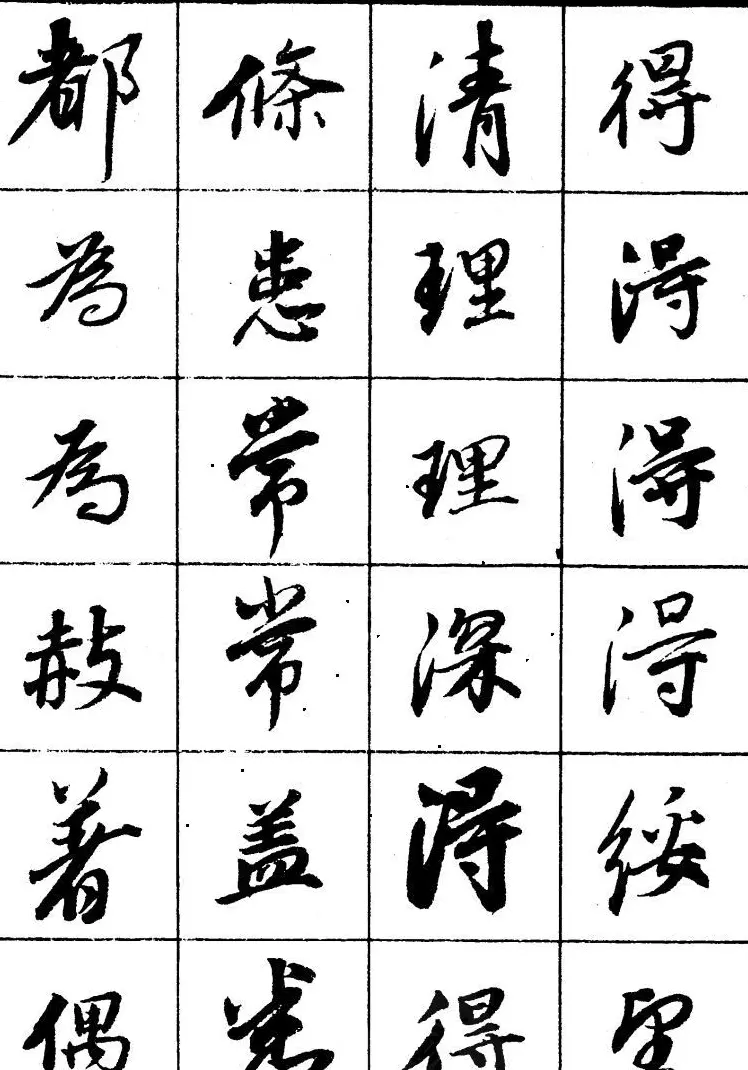 都為為赦著偶
條患常常盖
清理理深得得
得得得得綏